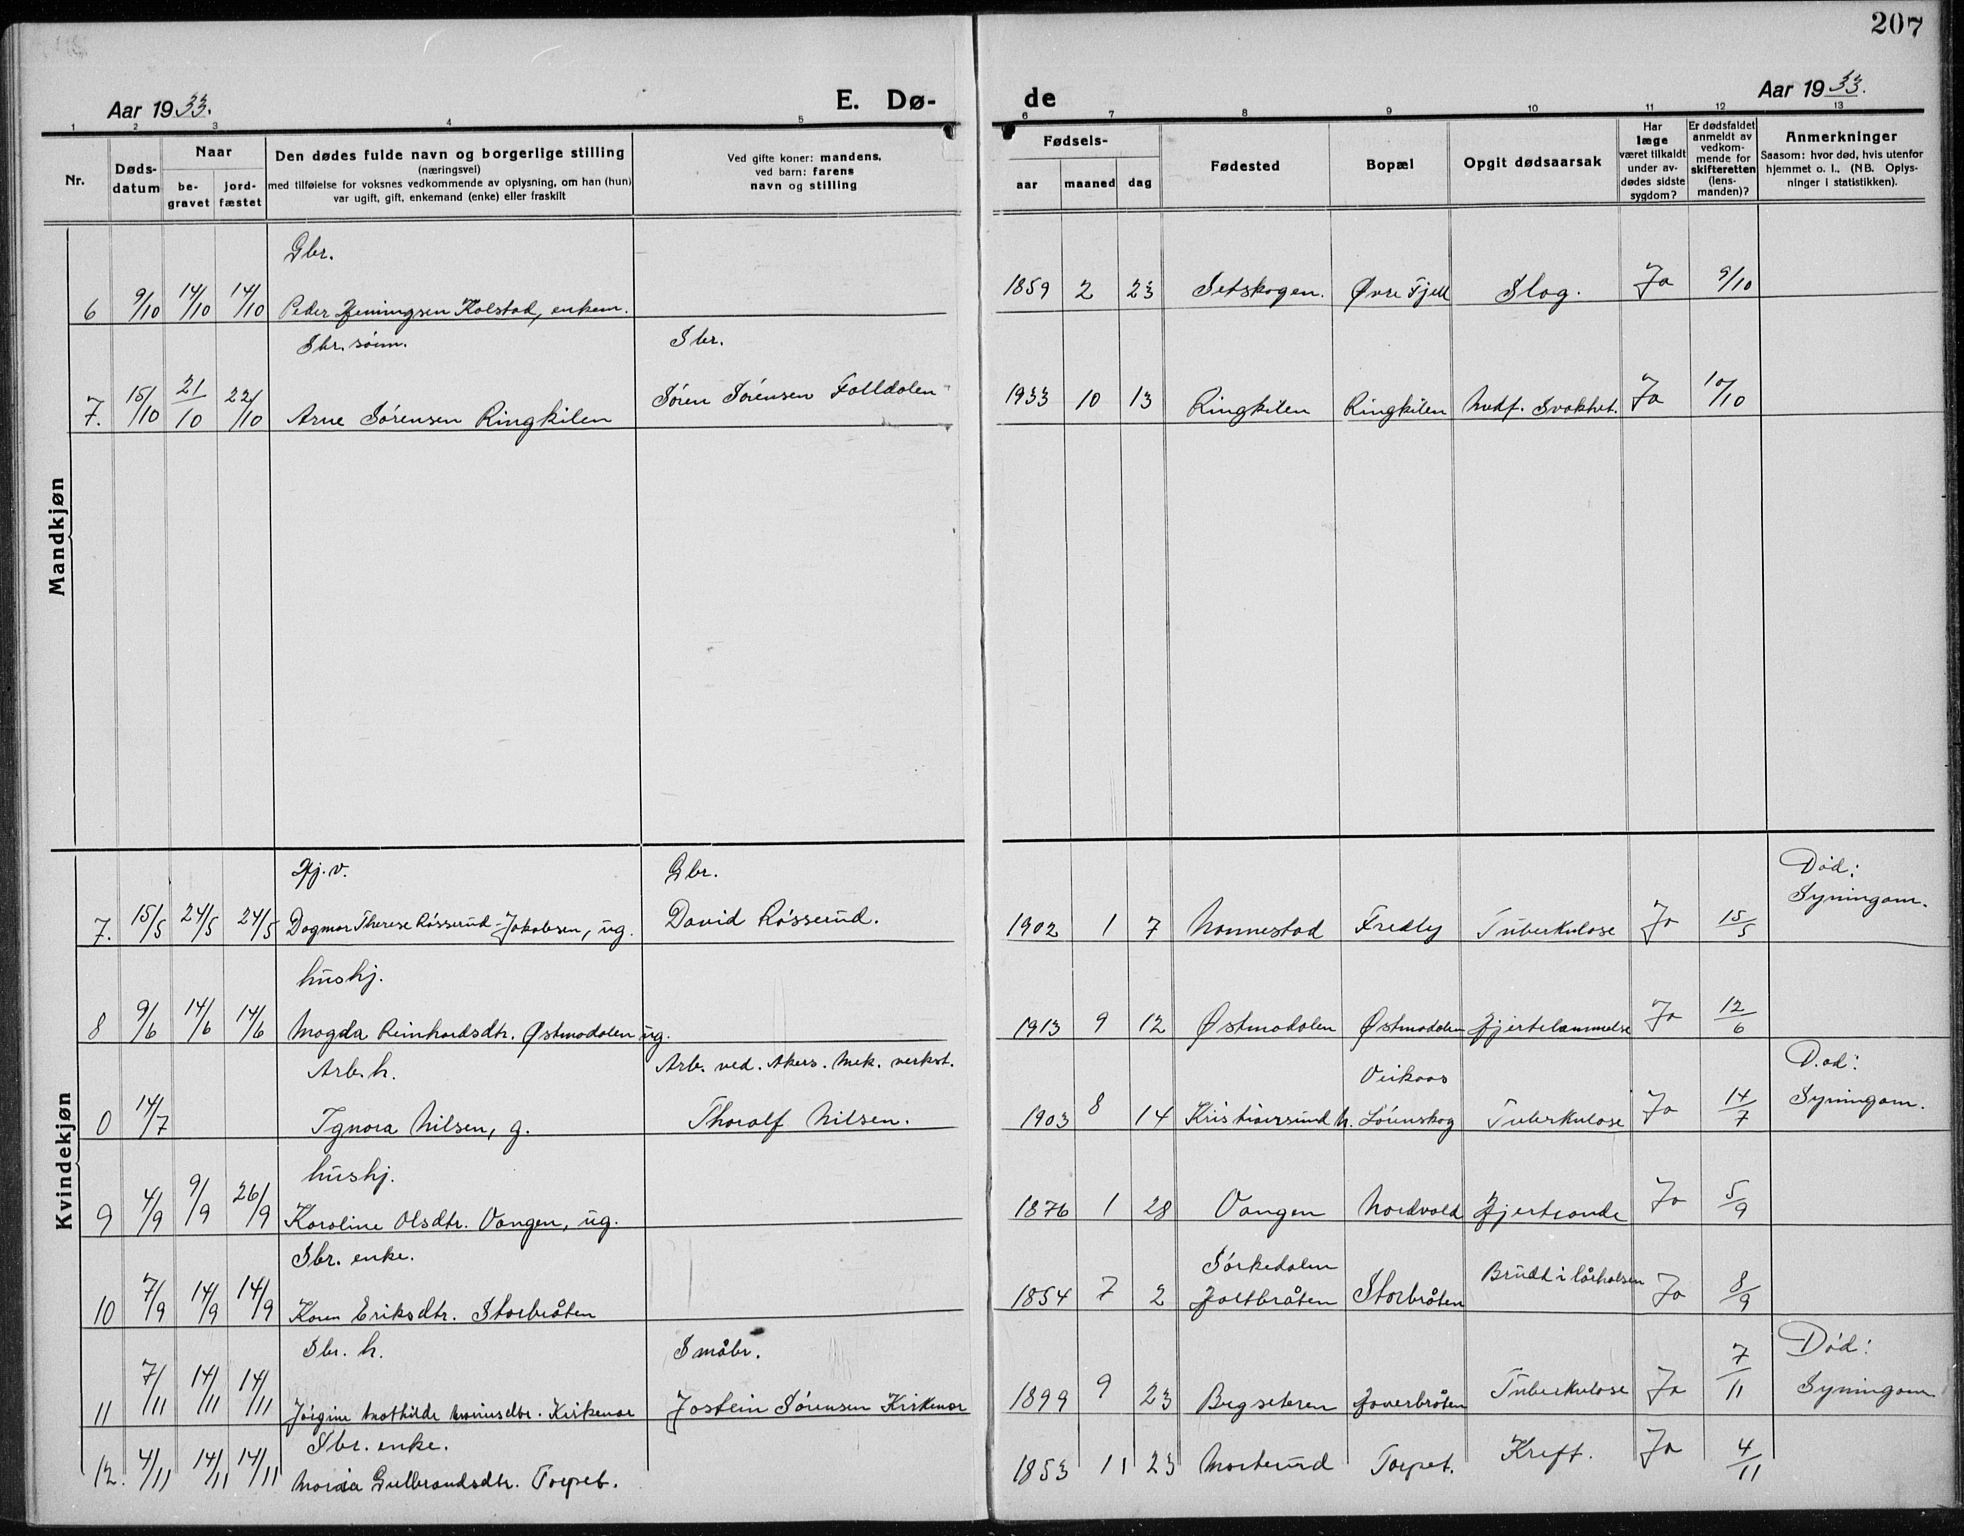 207
Aar 1933.
E. Dø-
de
Aar 1933.
1 2 3 4 5 6 7 8 9 10 11 12 13
Nr.
Døds-
datum
Naar
be-
gravet
jord-
fæstet
Den dødes fulde navn og borgerlige stilling
(næringsvei)
med tilføielse for voksnes vedkommende av oplysning, om han (hun)
var ugift, gift, enkemand (enke) eller fraskilt
Ved gifte koner: mandens,
ved barn: farens
navn og stilling
Fødsels-
aar maaned dag
Fødested
Bopæl
Opgit dødsaarsak
Har
læge
været tilkaldt
under av-
dødes sidste
sygdom?
Er dødsfaldet
anmeldt av
vedkom-
mende for
skifteretten
(lens-
manden)?
Anmerkninger
Saasom: hvor død, hvis utenfor
hjemmet o. l., (NB. Oplys-
ninger i statistikken).
Mandkjøn
Gbr.
6 9/10 14/10 14/10 Peder Hemingsen Kolstad, enkem. 1859 2 23 Setskogen. Øvre Fjell Slag. Ja 9/10
Sbr. sønn. Sbr.
7. 15/10 21/10 22/10 Arne Sørensen Ringkilen Søren Sørensen Falldalen 1933 10 13 Ringkilen Ringkilen Medf. Svakhet. Ja 10/10
Kvindekjøn
Hj. v. Gbr. Død:
7. 15/5 24/5 24/5 Dagmar Therese Røsserud-Jakobsen, ug. David Røsserud. 1902 1 7 Nannestad Fredly Tuberkulose Ja 15/5 Gyningom.
hushj.
8 9/6 14/6 14/6 Magda Reinhardsdtr. Østmodalen ug. 1913 9 12 Østmodalen Østmodalen Hjertelammelse Ja 12/6
Arb. h. Arb. ved. Akers. Mek. verkst. Død:
0 14/7 Ignora Nilsen, g. Thoralf Nilsen. 1903 8 14 Kristiansund N. Lørenskog Tuberkulose Ja 14/7
hushj.
9 4/9 9/9 26/9 Karoline Olsdtr. Vangen, ug. 1876 1 28 Vangen Nordvold Hjerteonde Ja 5/9
Sbr. enke. Sørkedalen
10 7/9 14/9 14/9 Karen Eriksdtr. Storbråten 1854 7 2 Storbråten Brudt i lårhalsen Ja 8/9
Sbr. h. Småbr. Død:
11 7/11 14/11 14/11 Jørgine Mathilde Kirkemoe Jostein Sørensen Kirkemoe 1899 9 23 Bergseteren Haverbråten Tuberkulose Ja 7/11
Sbr. enke.
12. 4/11 14/11 14/11 Maria Gulbrandsdtr. Torpet. 1853 11 23 Morterud Torpet. Kreft. Ja 4/11